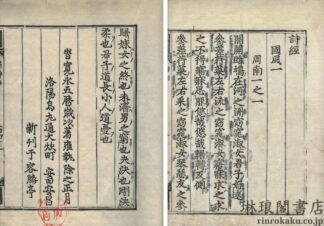 詩經
國風一
周南一之一
關關雎鳩在河之洲窈窕淑女君子好逑
參差荇菜左右流之窈窕淑女寤寐求之求
之不得寤寐思服悠哉悠哉輾轉反側
參差荇菜左右采之窈窕淑女琴瑟友之參
歸妹女之終也未濟男之窮也夬決也剛決
柔也君子道長小人道憂也
旹寛永五曆歲次著雍執除之正月
洛陽烏丸通大炊町 安田安昌
新刊于容膝亭
琳琅閣書店
rinrokaku.co.jp